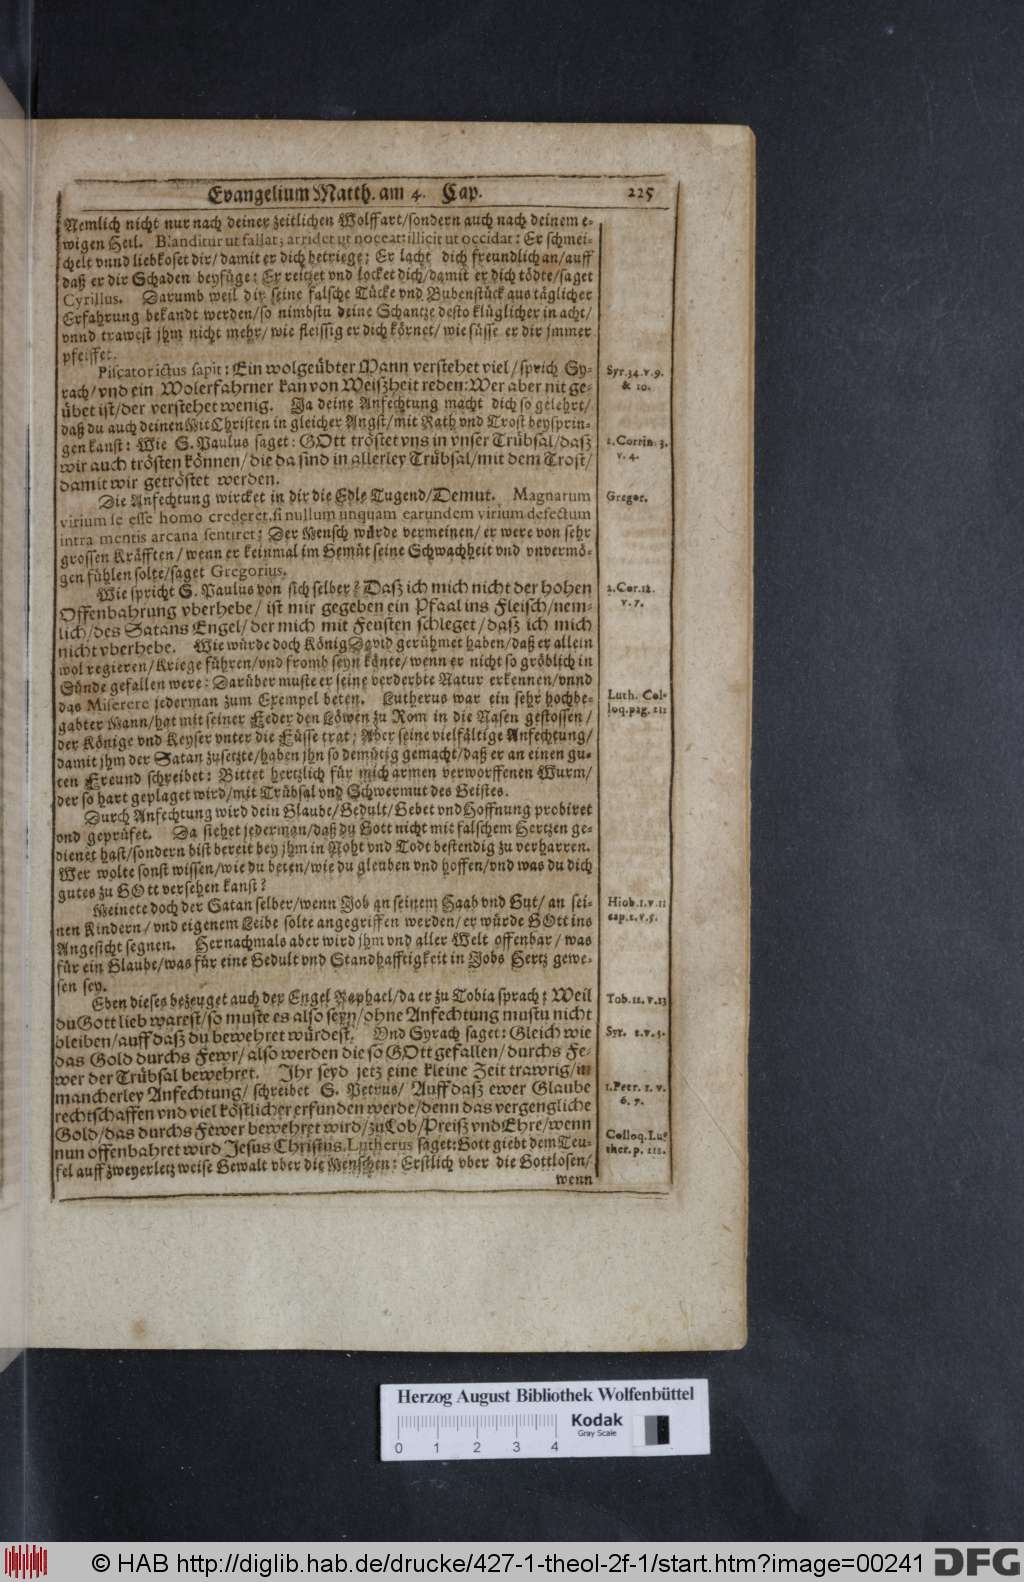 Evangelium Matth. am 4. Cap. 225
Nemlich nicht nur nach deiner zeitlichen Wolffart/sondern auch nach deinem e-
wigen Heil. Blanditur ut fallat; arridet ut noceat; illicit ut occidat: Er schmei-
chelt vnnd liebkoset dir/damit er dich betriege; Er lacht dich freundlich an/auff
daß er dir Schaden beyfüge: Er reitzet vnd locket dich/damit er dich tödte/saget
Cyrillus. Darumb weil dir seine falsche Tücke vnd Bubenstück aus täglicher
Erfahrung bekandt werden/so nimbstu deine Schantze desto klüglicher in acht/
vnnd trawest jhm nicht mehr/wie fleissig er dich körnet/wie süsse er dir jmmer
pfeiffet.
Piscator ictus sapit: Ein wolgeübter Mann verstehet viel/sprich Sy-
rach/vnd ein Wolerfahrner kan von Weißheit reden: Wer aber nit ge-
übet ist/der verstehet wenig. Ja deine Anfechtung macht dich so gelehrt/
daß du auch deinen Mit Christen in gleicher Angst/mit Rath vnd Trost beysprin-
gen kanst: Wie S. Paulus saget: GOtt tröstet vns in vnser Trübsal/daß
wir auch trösten können/die da sind in allerley Trübsal/mit dem Trost/
damit wir getröstet werden.
Die Anfechtung wircket in dir die Edle Tugend/Demut. Magnarum
virium se esse homo crederet, si nullum unquam earundem virium defectum
intra mentis arcana sentiret; Der Mensch würde vermeinen/er were von sehr
grossen Kräfften/wenn er keinmal im Gemüt seine Schwachheit vnd vnvermö-
gen fühlen solte/saget Gregorius.
Wie spricht S. Paulus von sich selber? Daß ich mich nicht der hohen
Offenbahrung vberhebe/ist mir gegeben ein Pfaal ins Fleisch/nem-
lich/des Satans Engel/der mich mit Feusten schleget/daß ich mich
nicht vberhebe. Wie würde doch König David gerühmet haben/daß er allein
wol regieren/Kriege führen/vnd fromb seyn könte/wenn er nicht so gröblich in
Sünde gefallen were: Darüber muste er seine verderbte Natur erkennen/vnnd
das Miserere jederman zum Exempel beten. Lutherus war ein sehr hochbe-
gabter Mann/hat mit seiner Feder den Löwen zu Rom in die Nasen gestossen/
der Könige vnd Keyser vnter die Füsse trat; Aber seine vielfältige Anfechtung/
damit jhm der Satan zusetzte/haben jhn so demütig gemacht/daß er an einen gu-
ten Freund schreibet: Bittet hertzlich für mich armen verworffenen Wurm/
der so hart geplaget wird/mit Trübsal vnd Schwermut des Geistes.
Durch Anfechtung wird dein Glaube/Gedult/Gebet vnd Hoffnung probiret
vnd geprüfet. Da siehet jederman/daß du Gott nicht mit falschem Hertzen ge-
dienet hast/sondern bist bereit bey jhm in Noht vnd Todt bestendig zu verharren.
Wer wolte sonst wissen/wie du beten/wie du gleuben vnd hoffen/vnd was du dich
gutes zu GOtt versehen kanst?
Meinete doch der Satan selber/wenn Job an seinem Haab vnd Gut/an sei-
nen Kindern/vnd eigenem Leibe solte angegriffen werden/er würde GOtt ins
Angesicht segnen. Hernachmals aber wird jhm vnd aller Welt offenbar/was
für ein Glaube/was für eine Gedult vnd Standhafftigkeit in Jobs Hertz gewe-
sen sey.
Eben dieses bezeuget auch der Engel Raphael/da er zu Tobia sprach; Weil
du Gott lieb warest/so muste es also seyn/ohne Anfechtung mustu nicht
bleiben/auff daß du bewehret würdest. Vnd Syrach saget: Gleich wie
das Gold durchs Fewr/also werden die so GOtt gefallen/durchs Fe-
wer der Trübsal bewehret. Jhr seyd jetz eine kleine Zeit trawrig/in
mancherley Anfechtung/schreibet S. Petrus/Auff daß ewer Glaube
rechtschaffen vnd viel köstlicher erfunden werde/denn das vergengliche
Gold/das durchs Fewer bewehret wird/zu Lob/Preiß vnd Ehre/wenn
nun offenbahret wird Jesus Christus. Lutherus saget: Gott giebt dem Teu-
fel auff zweyerley weise Gewalt vber die Menschen: Erstlich vber die Gottlosen/
wenn
Syr. 34. v. 9.
& 10.
v. 4.
Gregor.
2. Cor. 12.
v. 7.
Luth. Col-
loq. pag. 212
Hiob. 1. v. 11
cap. 2. v. 5.
Tob. 12. v. 13
Syr. 2. v. 5.
1. Petr. 1. v.
6. 7.
Colloq. Lu-
ther. p. 212.
Herzog August Bibliothek Wolfenbüttel
Kodak
Gray Scale
0 1 2 3 4
© HAB http://diglib.hab.de/drucke/427-1-theol-2f-1/start.htm?image=00241 DFG